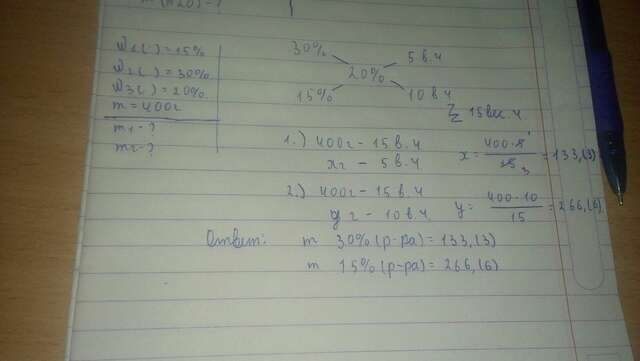 m (H2O) - ?
W1( ) = 15%
W2( ) = 30%
W3( ) = 20%
m = 400г
m1 - ?
m2 - ?
30% 5 в.ч
20%
15% 10 в ч
Σ 15 вес. ч
1.) 400г - 15 в.ч
xг - 5 в.ч
x = 400·5 / 15 3 = 133,(3)
2.) 400г - 15 в.ч
y г - 10 в ч.
y = 400·10 / 15 = 266,(6)
Ответ: m 30% (р-ра) = 133,(3)
m 15% (р-ра) = 266,(6)